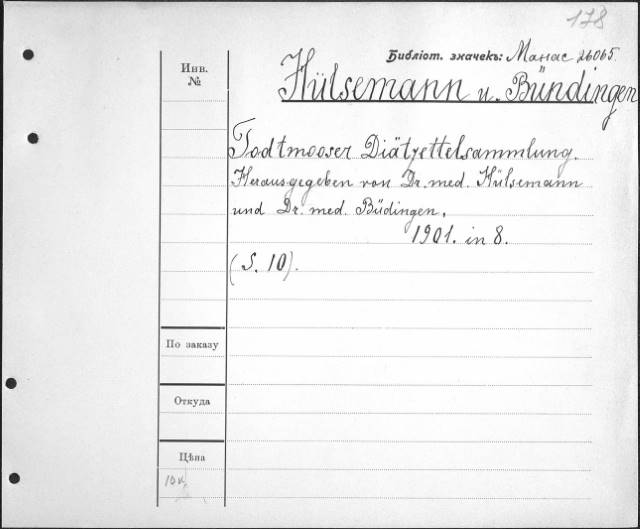 178
Библіот. значекъ: Манас 26065.
Инв. №
Hülsemann u. Bündingen
Todtmooser Diätzettelsammlung.
Herausgegeben von Dr. med. Hülsemann
und Dr. med. Büdingen.
1901. in 8.
(S. 10).
По заказу
Откуда
Цѣна